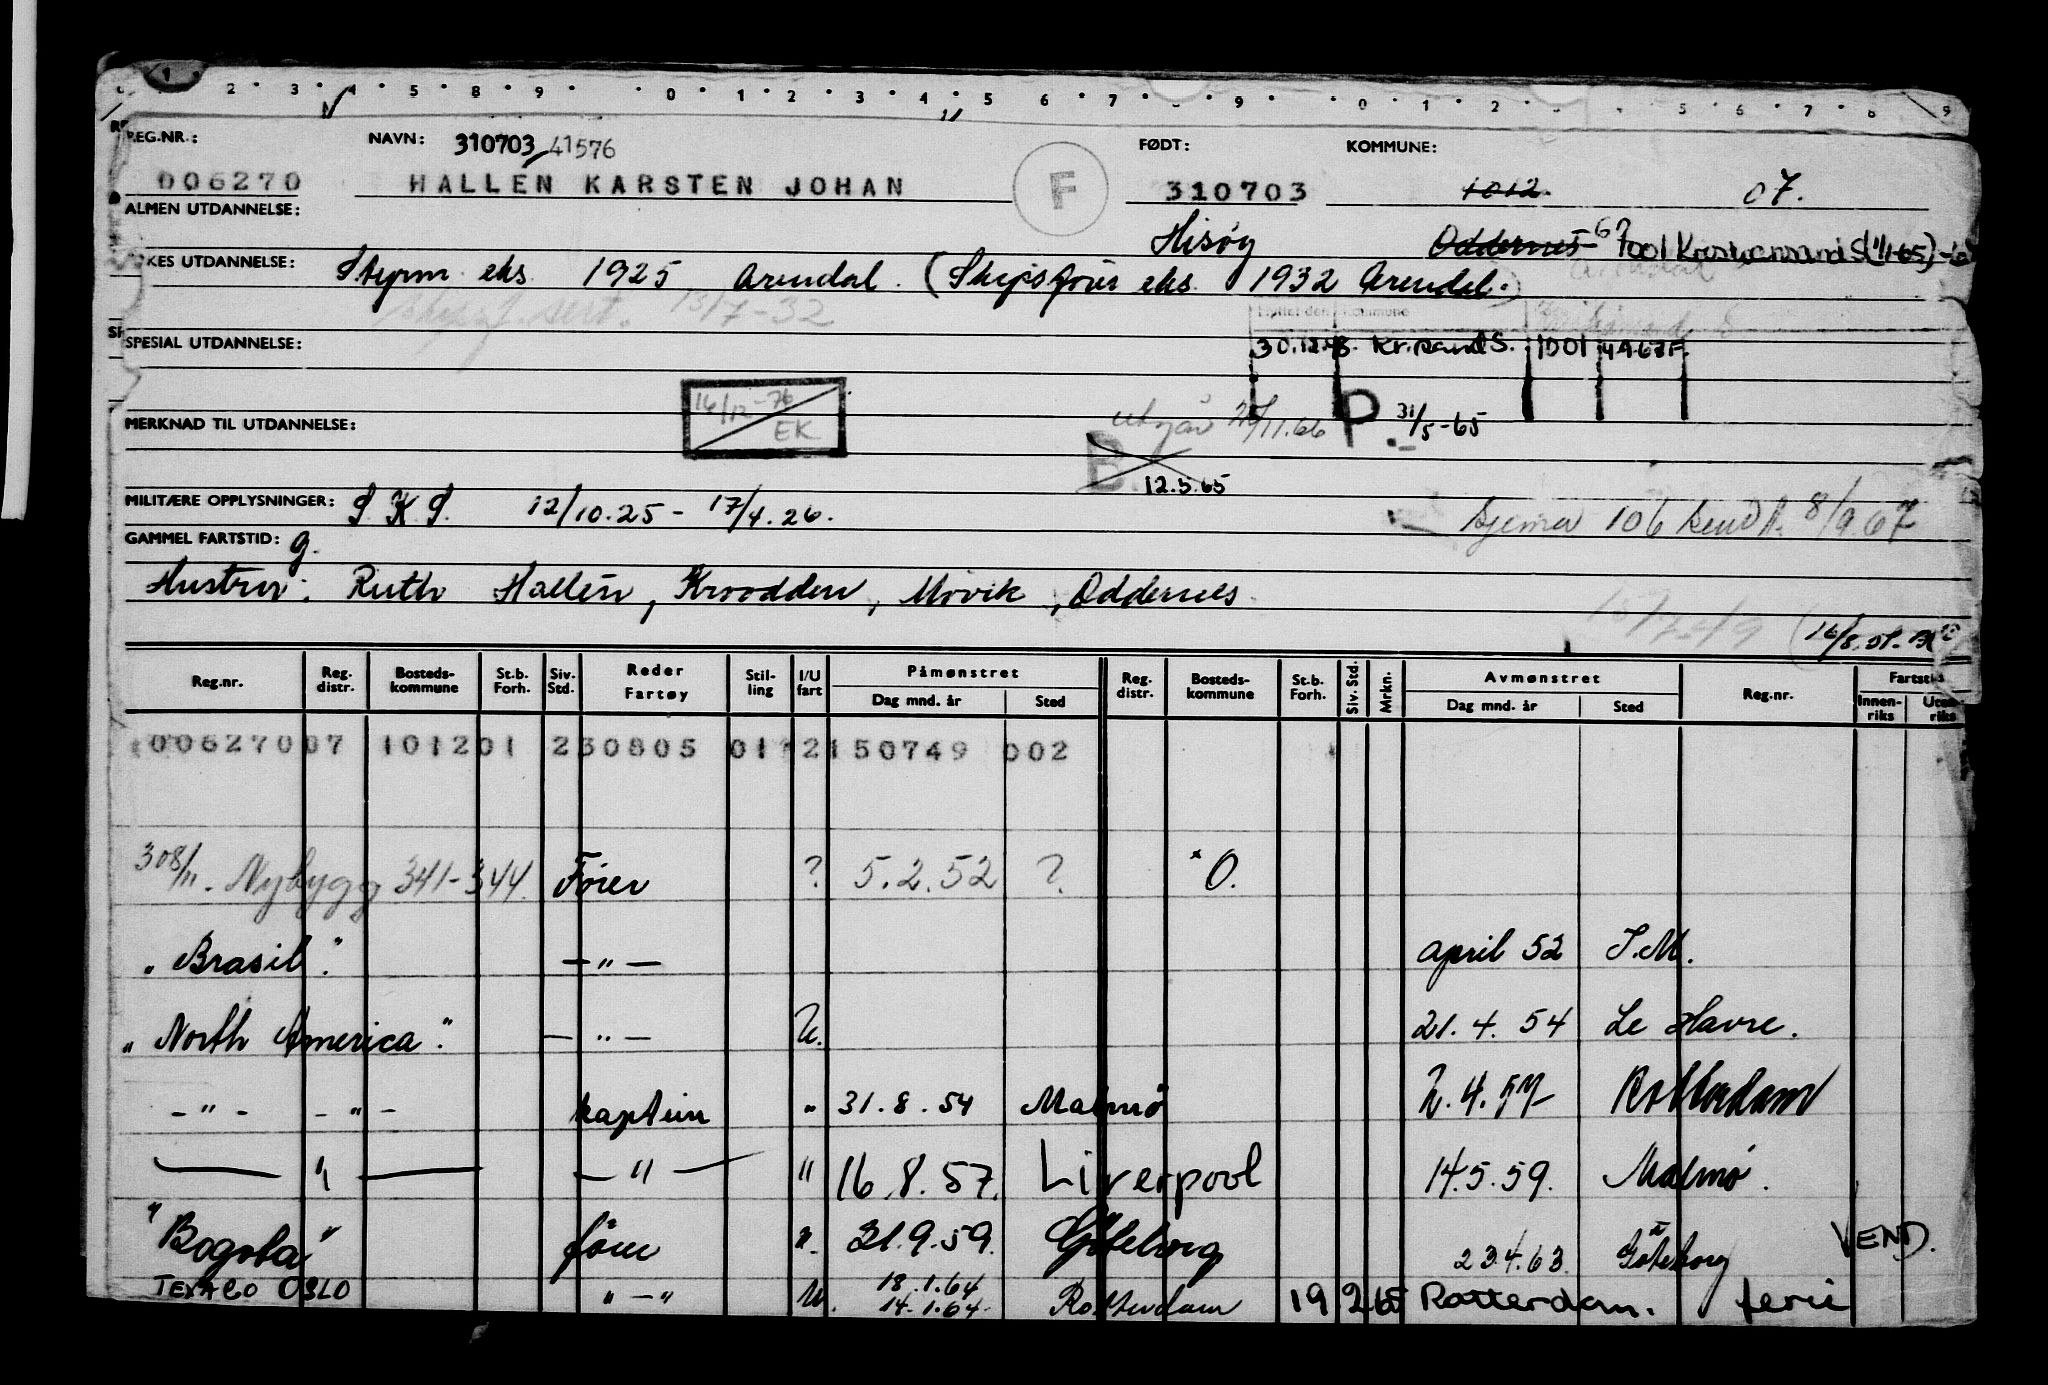 1 2 3 4 5 8 9 0 1 2 3 4 5 6 7 9 0 1 2 5 6 7 8 9
REG.NR.: NAVN: 310703 41576 FØDT: KOMMUNE:
006270 HALLEN KARSTEN JOHAN F 310703 1012. 07.
ALMEN UTDANNELSE: Hisøy Oddernes
KES UTDANNELSE: Styrm eks 1925 Arendal. (Skipsfører eks 1932 Arendal.)
Skipsf. sert. 13/7-32
Kommune
SPESIAL UTDANNELSE: 30.12. Kr.sand S. 1001
16/12-76 EK
MERKNAD TIL UTDANNELSE: utgår 11.66 P. 31/5-65
B. 12.5.65
MILITÆRE OPPLYSNINGER: S.K.S. 12/10.25 - 17/4.26.
skjema 106 sendt. 8/9.67
GAMMEL FARTSTID: g.
Hustru: Ruth Hallen, Kroodden, Møvik, Oddernes
16/8.51.
Reg.nr. Reg. distr. Bosteds-kommune St.b. Forh. Siv. Std. Reder Fartøy Stil-ling I/U fart Påmønstret Dag mnd. år Sted Reg. distr. Bosteds-kommune St.b. Forh. Siv. Std. Mrkn. Avmønstret Dag mnd. år Sted Reg.nr. Fartsti Innen-riks Uten-riks
00627007 101201 230805 01 2150749 002
308/11. Nybygg 341-344. Fører ? 5.2.52 ? O.
"Brasil". — " — april 52 S.M.
"North America". — " — U. 21.4.54 Le Havre.
- " - - " - kaptein " 31.8.54 Malmø 2.4.57 Rotterdam
— " — — " — " 16.8.57. Liverpool 14.5.59. Malmø.
"Bogota" fører ". 21.9.59. Gøteborg 23.4.63. Göteborg VEND.
TEXACO OSLO " — " U. 18.1.64
14.1.64 Rotterdam 19 2 65 Rotterdam. ferie